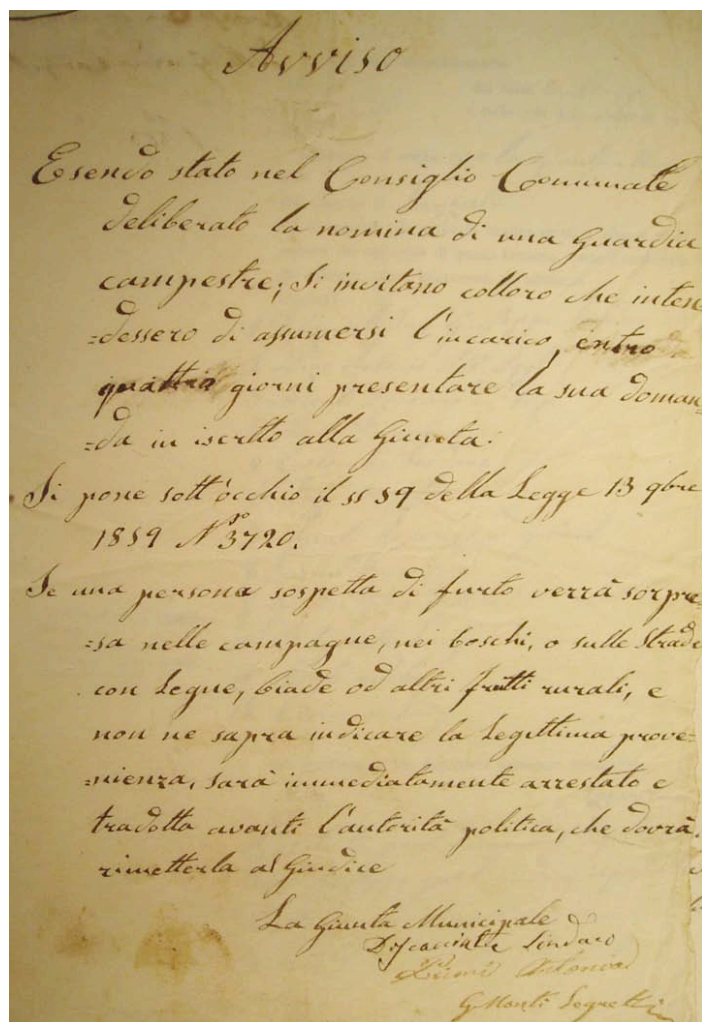 Avviso
Esendo stato nel Consiglio Comunale
deliberato la nomina di una Guardia
campestre; Si invitano colloro che inten
=dessero di assumersi l'incarico, entro
quattro giorni presentare la sua doman=
=da in iscritto alla Giunta.
Si pone sott'occhio il §§ 59 della Legge 13 9bre
1859 N.° 3720.
Se una persona sospetta di furto verrà sorpre=
=sa nelle campagne, nei boschi, o sulle Strade
con Legne, biade od altri frutti rurali, e
non ne sapra indicare la Legittima prove=
=nienza, sarà immediatamente arrestato e
tradotta avanti l'autorità politica, che dovrà
rimetterla al Giudice
La Giunta Municipale
Sindaco
G Monti Segret